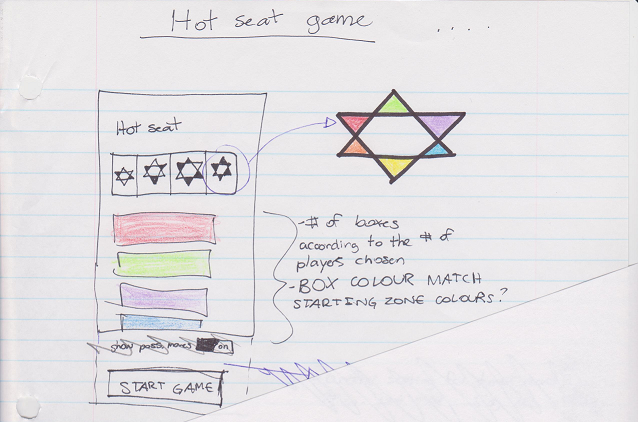 Hot seat game
....
Hot seat
- # of boxes
according to the # of
players chosen
- BOX COLOUR MATCH
STARTING ZONE COLOURS?
show poss. moves on
START GAME